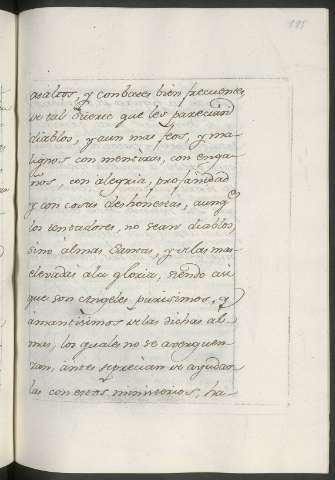 195
asaltos, y conbates bien frecuentes
de tal suerte que les parecian
diablos, y aun mas feos, y ma-
lignos con mentiras, con enga-
ños, con alegria, profanidad
y con cosas deshonestas, aunq^e
los tentadores, no sean diablos,
sino almas santas, y de las mas
elevadas a la gloria, siendo asi
que son Angeles purisimos, y
amantisimos de las dichas al-
mas, los quales no se averguen-
zan, antes se precian de ayudar-
las con estos ministerios, ha-